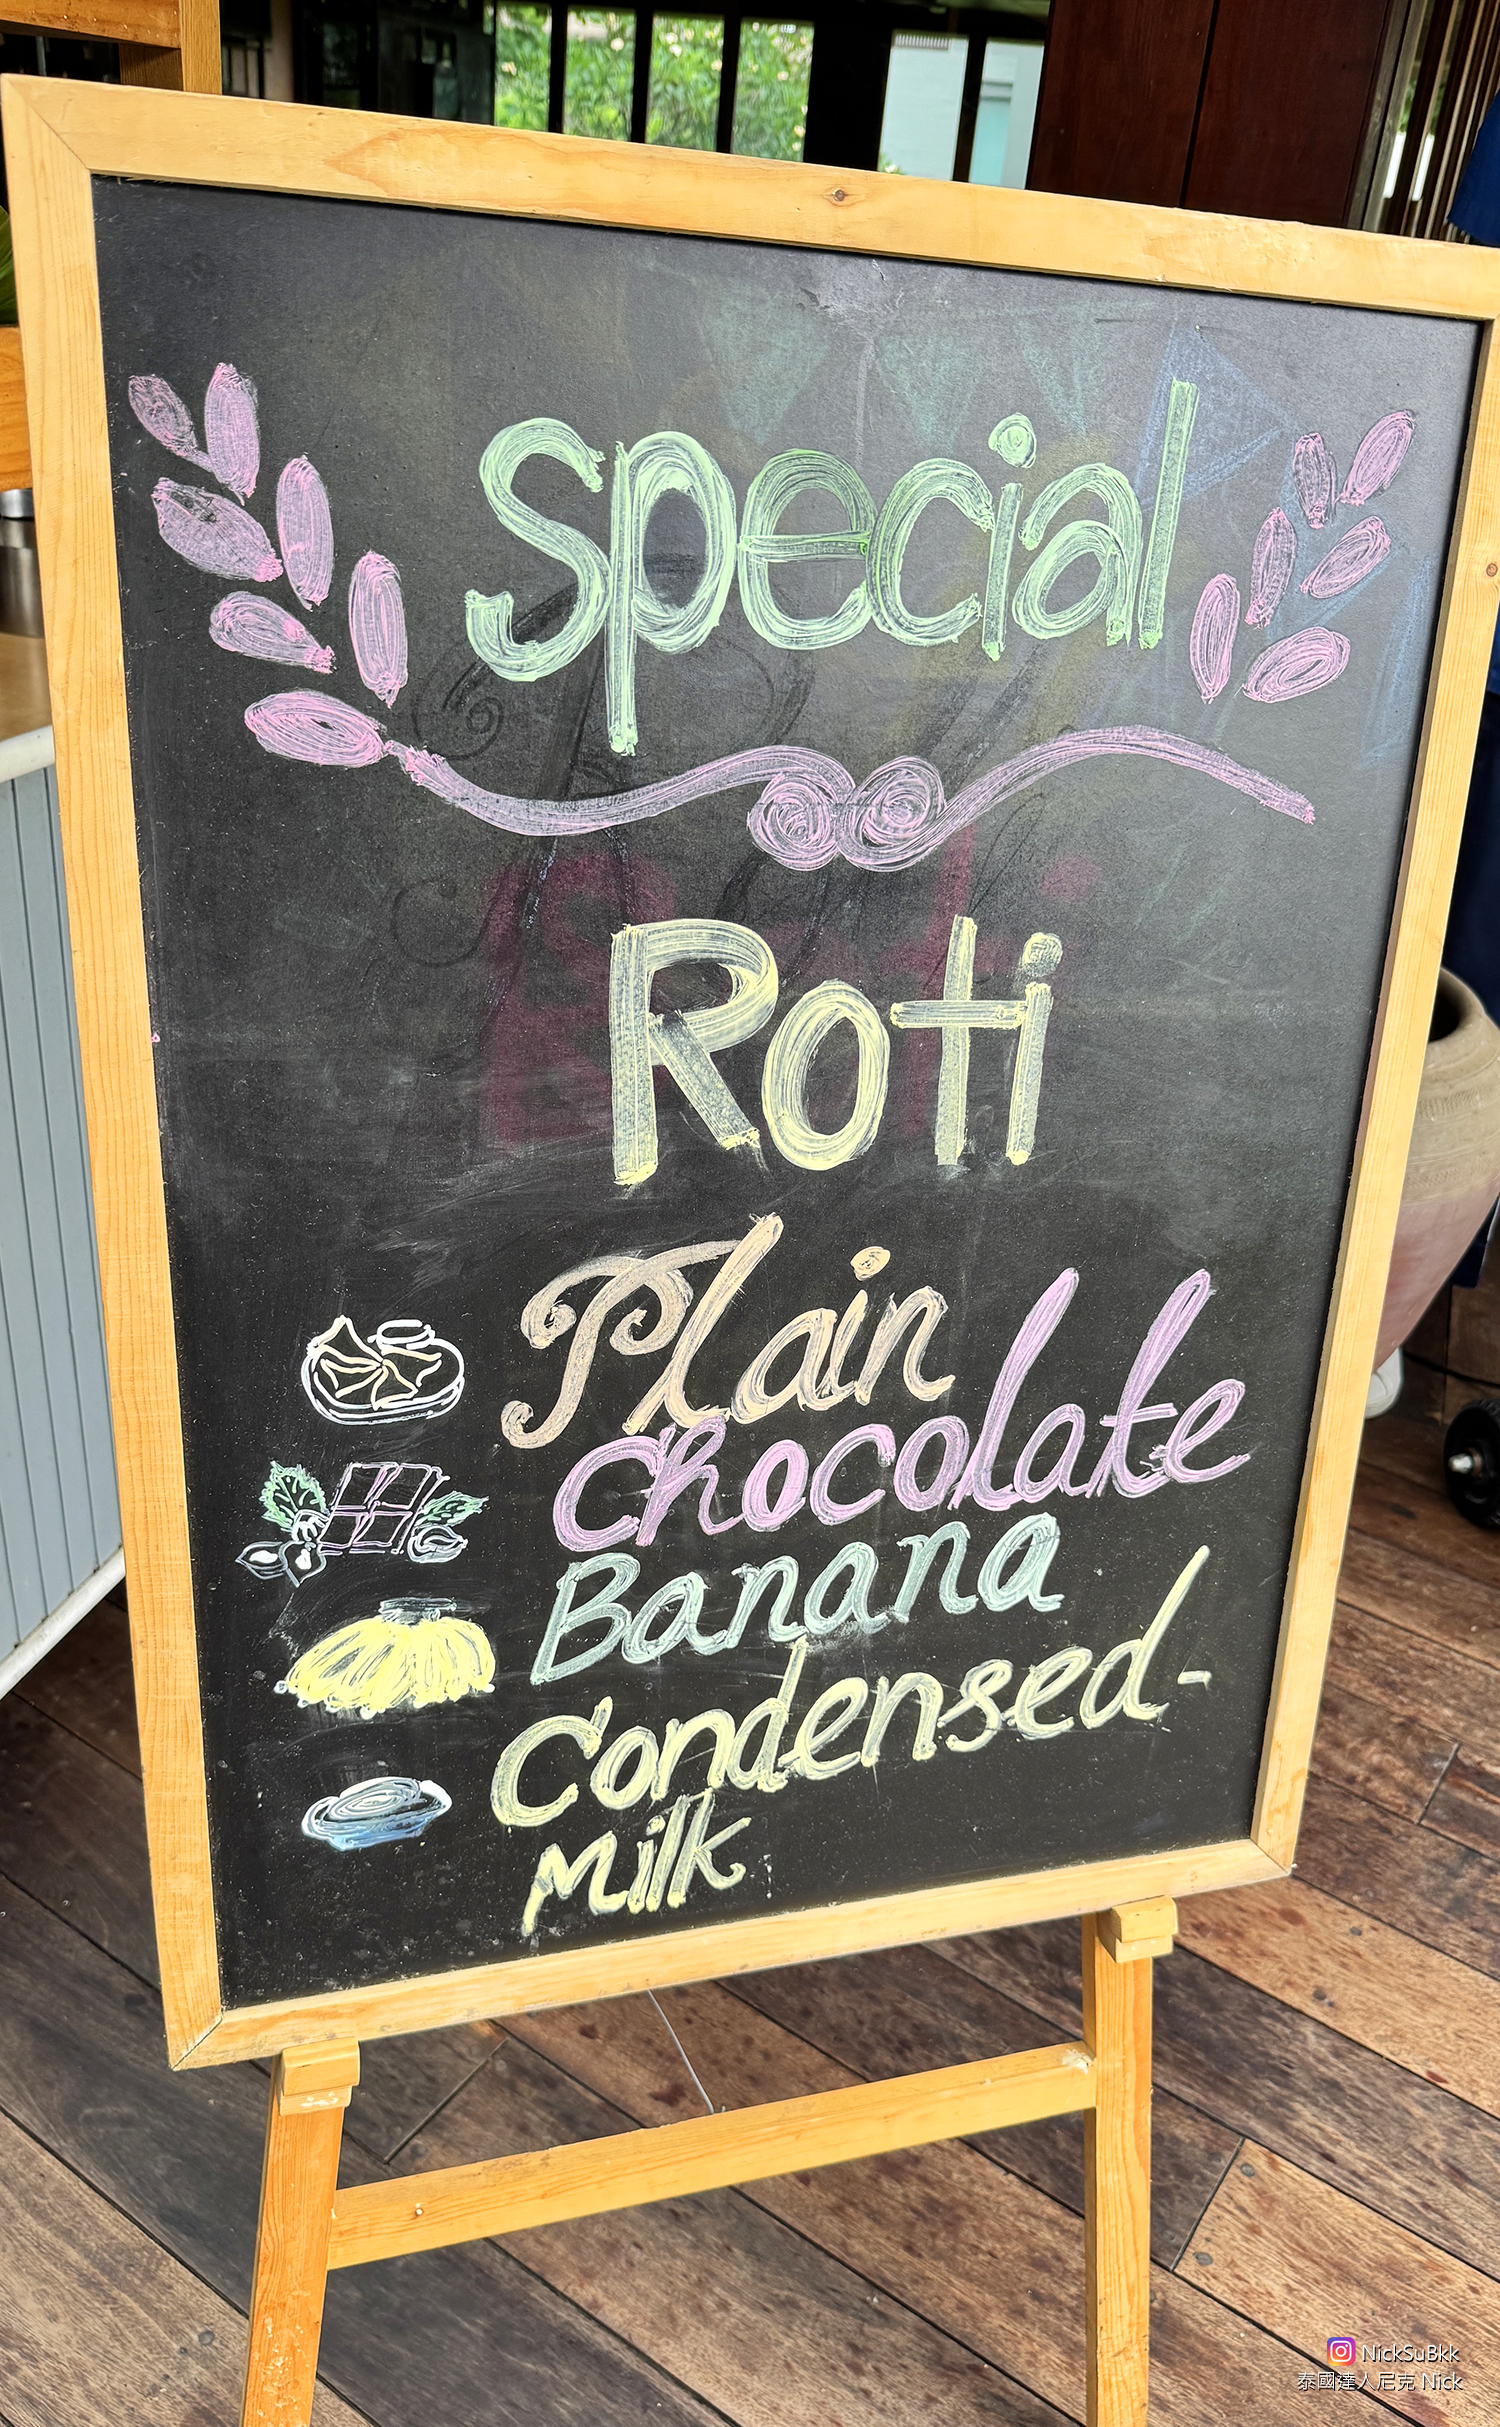 special
Roti
Plain
chocolate
Banana
Condensed-
milk
NickSuBkk
泰國達人尼克 Nick